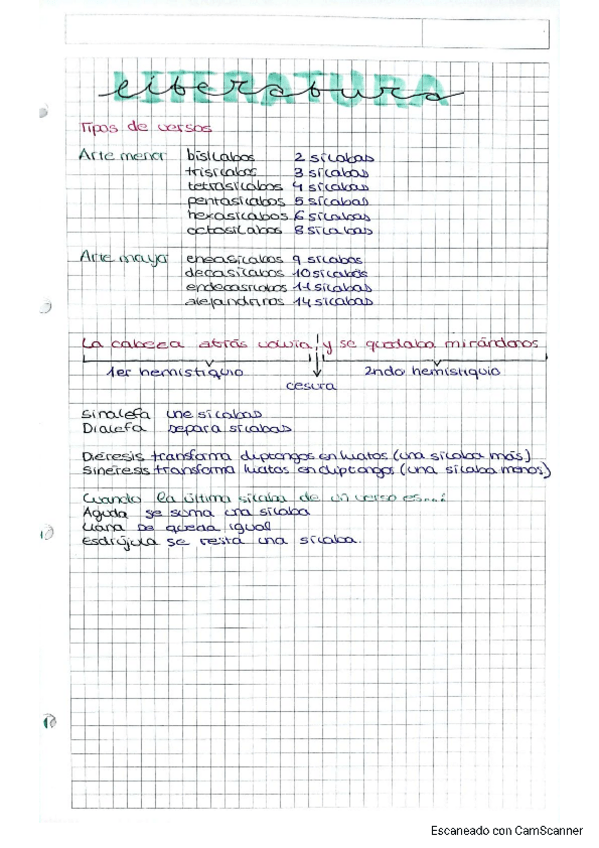 LITERATURA
literatura
Tipos de versos
Arte menor bisílabos 2 sílabas
trisílabos 3 sílabas
tetrasílabos 4 sílabas
pentasílabos 5 sílabas
hexasílabos 6 sílabas
octosílabos 8 sílabas
Arte mayor eneasílabos 9 sílabas
decasílabos 10 sílabas
endecasílabos 11 sílabas
alejandrinos 14 sílabas
La cabeza atrás volvía y se quedaba mirándonos
1er hemistiquio 2ndo hemistiquio
cesura
Sinalefa une sílabas
Dialefa separa sílabas
Diéresis transforma diptongos en hiatos (una sílaba más)
Sinéresis transforma hiatos en diptongos (una sílaba menos)
Cuando la última sílaba de un verso es...:
Aguda se suma una sílaba
Llana se queda igual
Esdrújula se resta una sílaba.
Escaneado con CamScanner